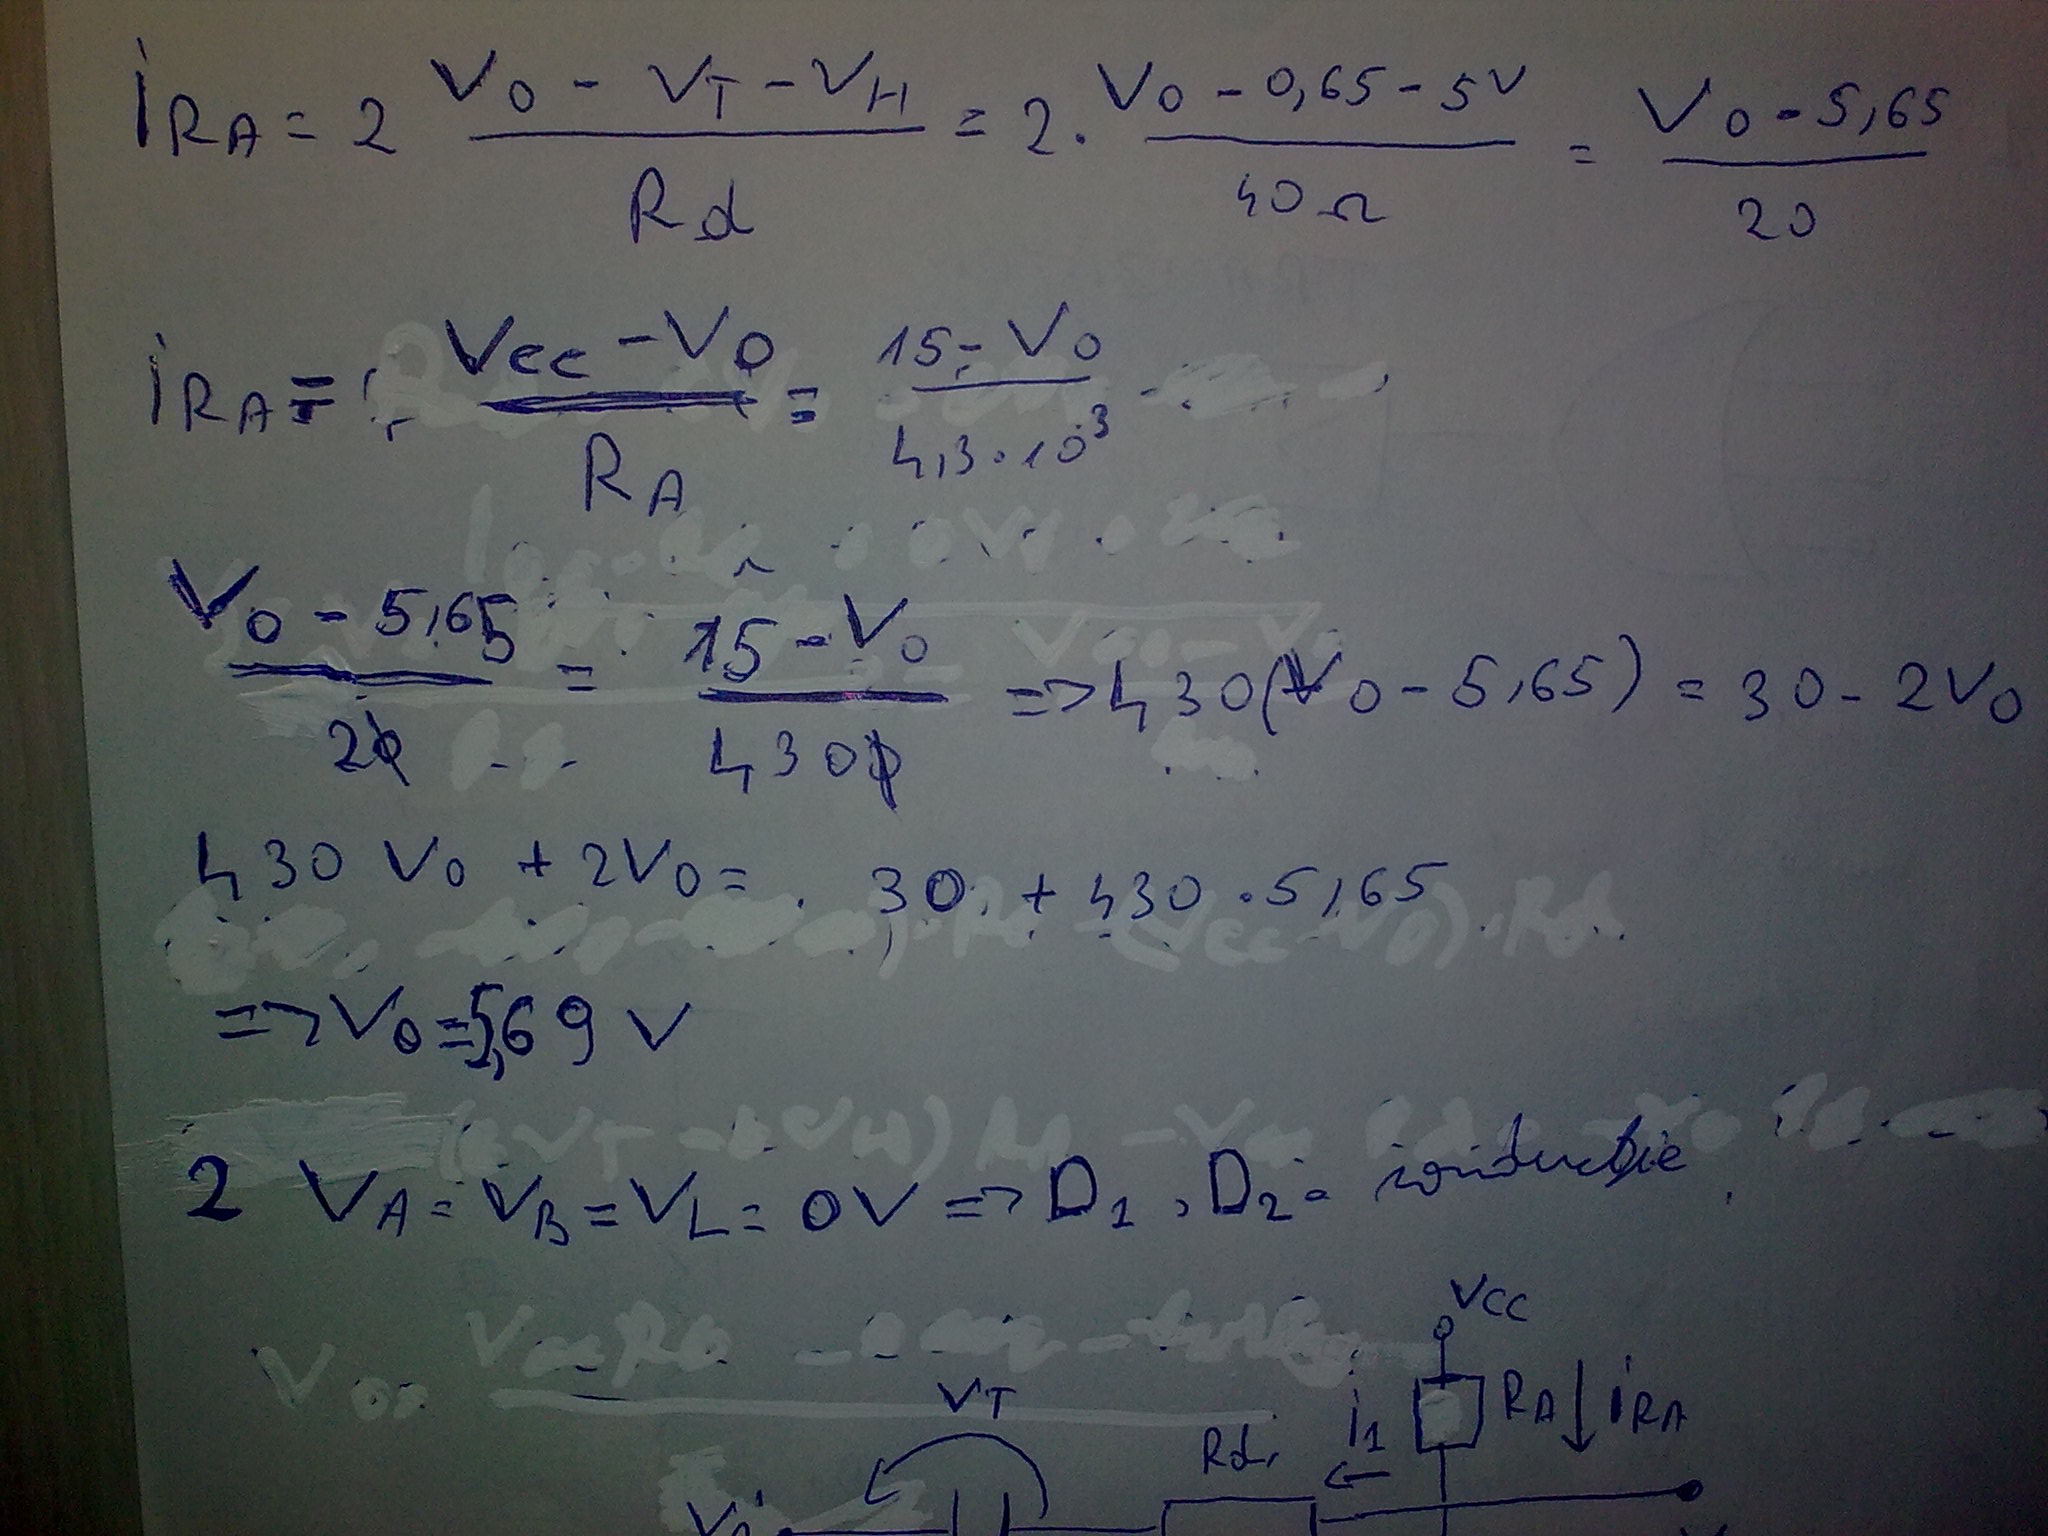 iRA = 2 VO - VT - VH / Rd = 2 · VO - 0,65 - 5V / 40Ω = VO - 5,65 / 20
iRA = Vcc - VO / RA = 15 - VO / 4,3 · 10³
VO - 5,65 / 20 = 15 - VO / 4300 => 430(VO - 5,65) = 30 - 2VO
430 VO + 2VO = 30 + 430 · 5,65
=> VO = 5,69 V
2 VA = VB = VL = 0V => D1, D2 - conductie
Vcc
VT Rd, i1 RA iRA